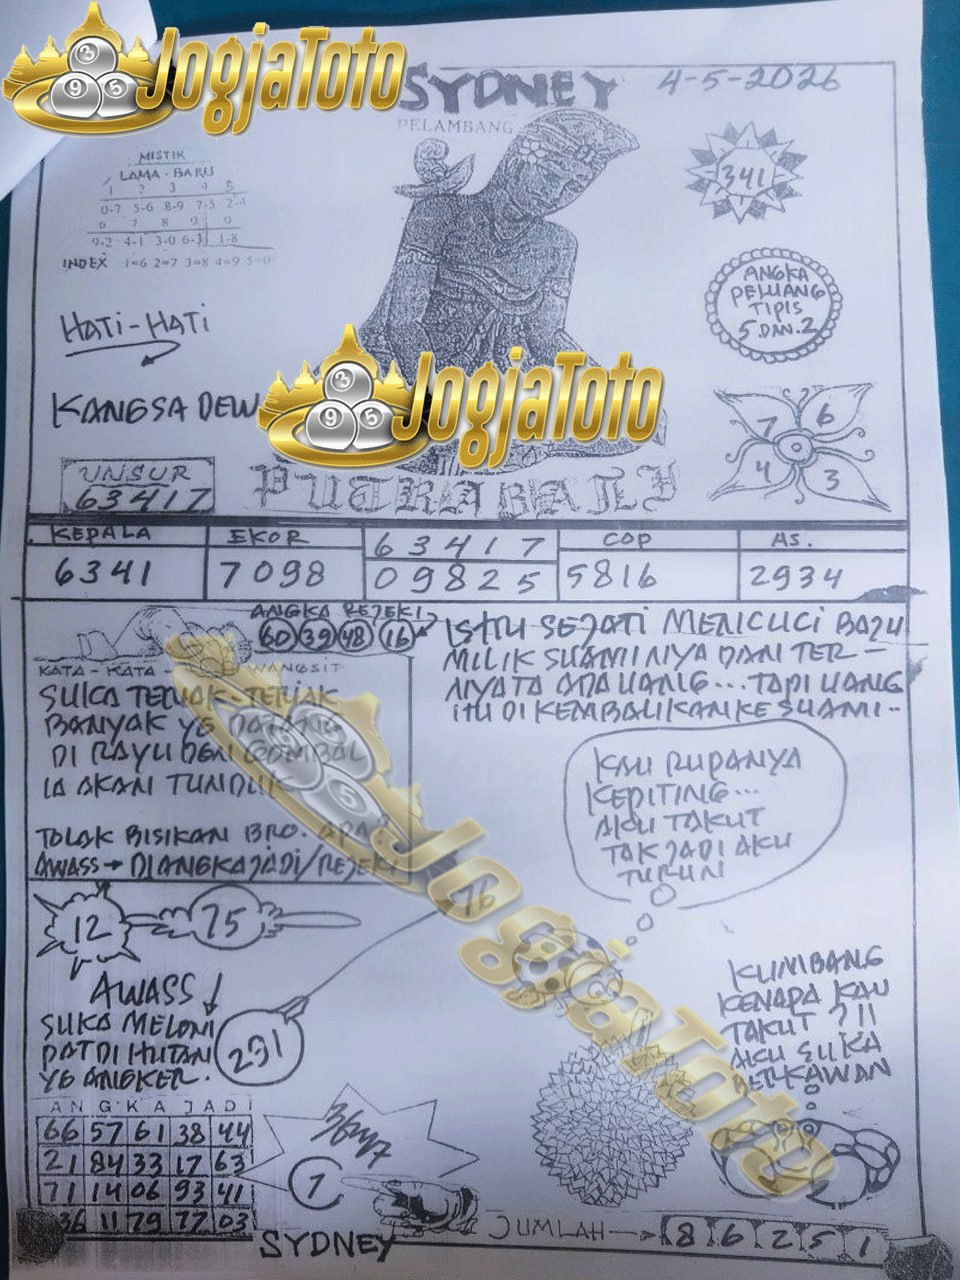 JogjaToto
SYDNEY
4-5-2026
PELAMBANG
MISTIK
LAMA - BARU
1 2 3 4 5
0-7 5-6 8-9 7-5 2-4
6 7 8 9 0
9-2 4-1 3-0 6-3 1-8
INDEX 1=6 2=7 3=8 4=9 5=0
341
ANGKA
PELUANG
TIPIS
5 DAN 2
HATI-HATI
KANGSA DEW
JogjaToto
7 6
4 3
UNSUR
63417
PUTRA BALI
KEPALA
6341
EKOR
7098
63417
09825
COP
5816
AS.
2934
ANGKA REJEKI
60 39 48 16
KATA - KATA WANGSIT
SUKA TERIAK-TERIAK
BANYAK YG DATANG
DI RAYU DEN GOMBAL
IA AKAN TUNDUK
TOLAK BISIKAN BRO. APA?
AWASS → DIANGKAJADI/REJEKI
ISTRI SEJATI MENCUCI BAJU
MILIK SUAMINYA DAN TER-
NYATA ADA UANG... TAPI UANG
ITU DI KEMBALIKAN KE SUAMI..
KAU RUPANYA
KEPITING...
AKU TAKUT
TAK JADI AKU
TURUN
12
75
76
JogjaToto
AWASS
SUKA
PAT DI HUTAN
YG ANGKER.
291
KUMBANG
KENAPA KAU
TAKUT ?!!
AKU SUKA
BERKAWAN
ANGKA JADI
66 57 61 38 44
21 84 33 17 63
71 14 06 93 41
36 11 79 77 03
1
2
SYDNEY
JUMLAH → 8 6 2 5 1